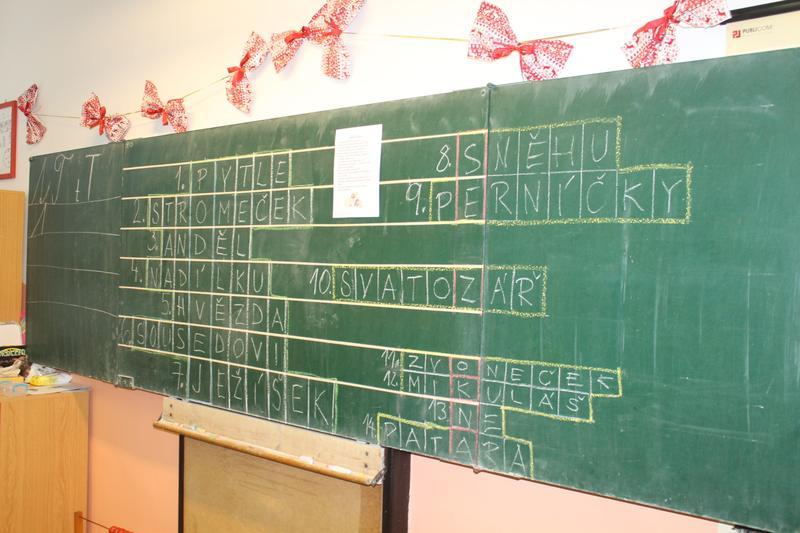 1. PYTLE
2. STROMEČEK
3. ANDĚL
4. NADÍLKU
5. HVĚZDA
6. SOUSEDOVI
7. JEŽÍŠEK
8. SNĚHU
9. PERNÍČKY
10. SVATOZÁŘ
11. ZVONEČEK
12. MIKULÁŠ
13. NE
14. PATARA
PUBLICOM